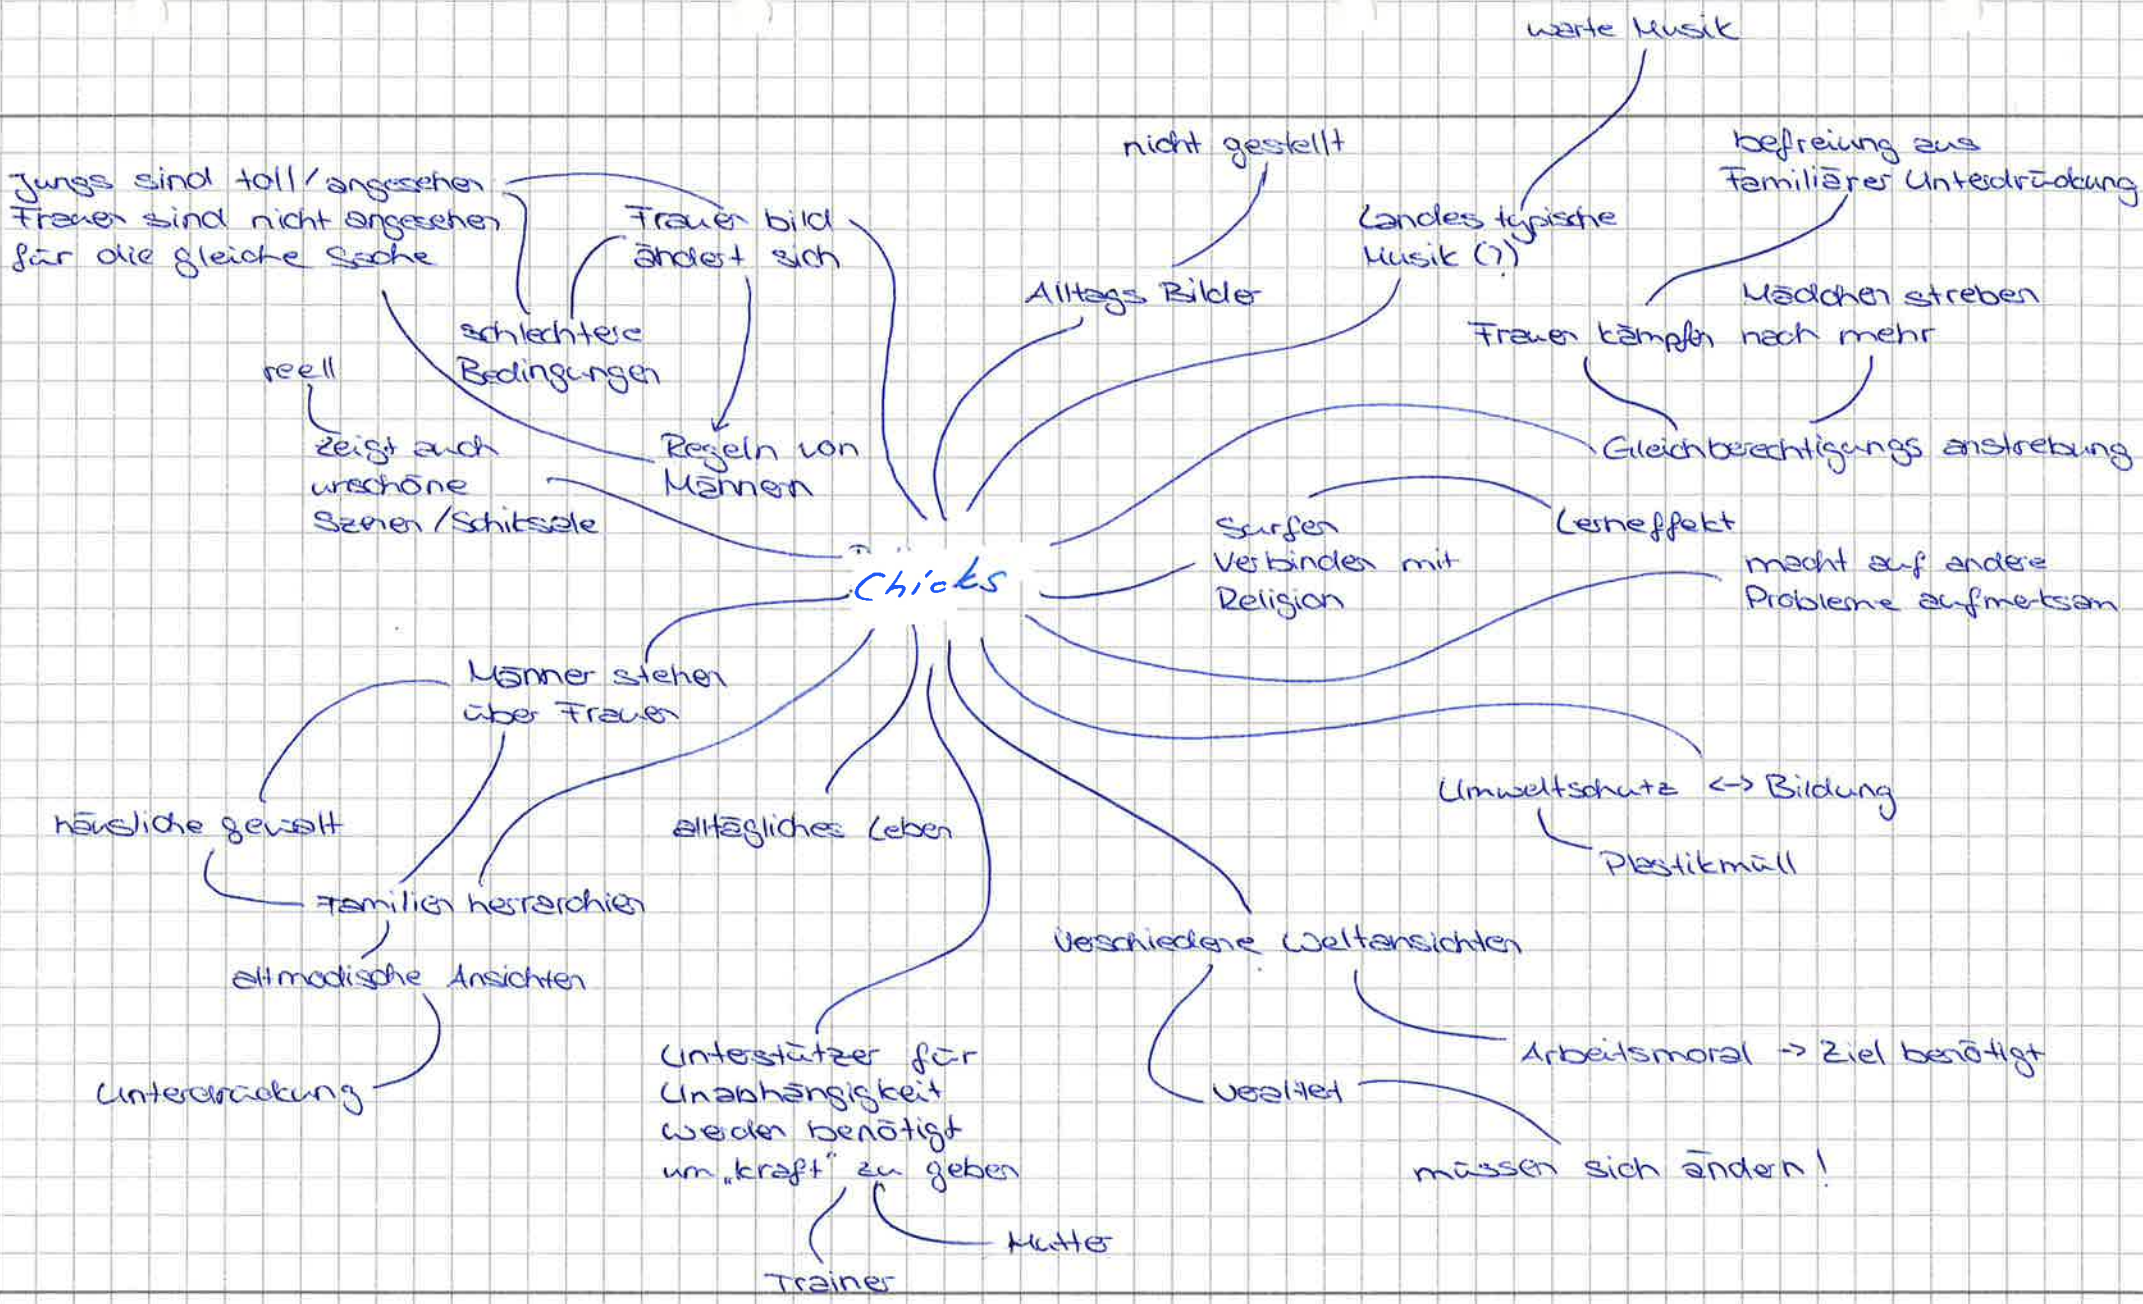 warte Musik
nicht gestellt
befreiung aus
Familiärer Unterdrückung
Jungs sind toll/angesehen
Frauen sind nicht angesehen
für die gleiche Sache
Frauen bild
ändert sich
Landes typische
Musik (?)
Alltags Bilder
Mädchen streben
nach mehr
Frauen kämpfen
schlechtere
Bedingungen
reell
zeigt auch
unschöne
Szenen/Schiksale
Regeln von
Männern
Gleichberechtigungs anstrebung
Surfen
Verbinden mit
Religion
Lerneffekt
macht auf andere
Probleme aufmerksam
Chicks
Männer stehen
über Frauen
häusliche gewalt
alltägliches Leben
Familien herrarchien
altmodische Ansichten
Unterdrückung
Umweltschutz <-> Bildung
Plastikmüll
Verschiedene Weltansichten
Arbeitsmoral -> Ziel benötigt
Veraltet
müssen sich ändern!
Unterstützer für
Unabhängigkeit
werden benötigt
um „kraft" zu geben
Mutter
Trainer